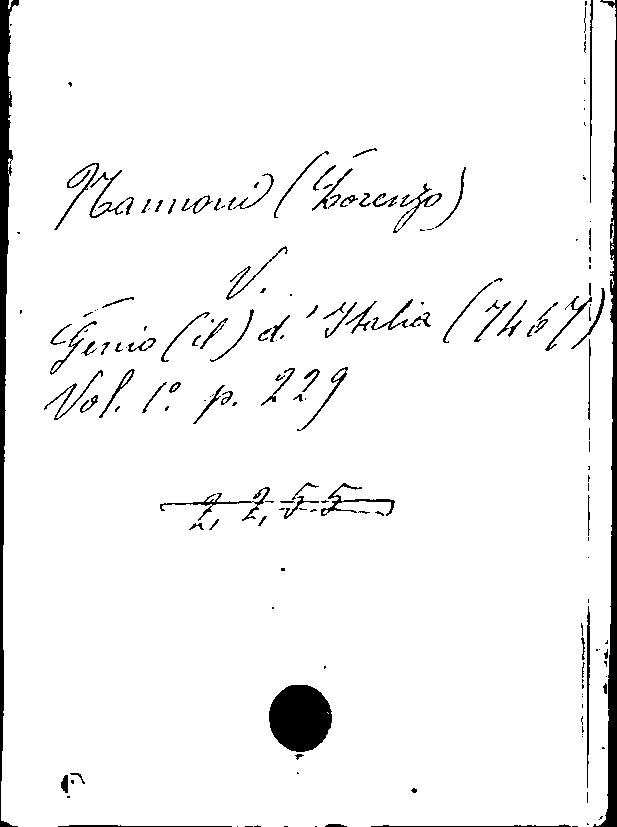 Nannoni (Lorenzo)
V.
Genio (il) d.' Italia (7467)
Vol. 1º. p. 229
2, 2, 5 5